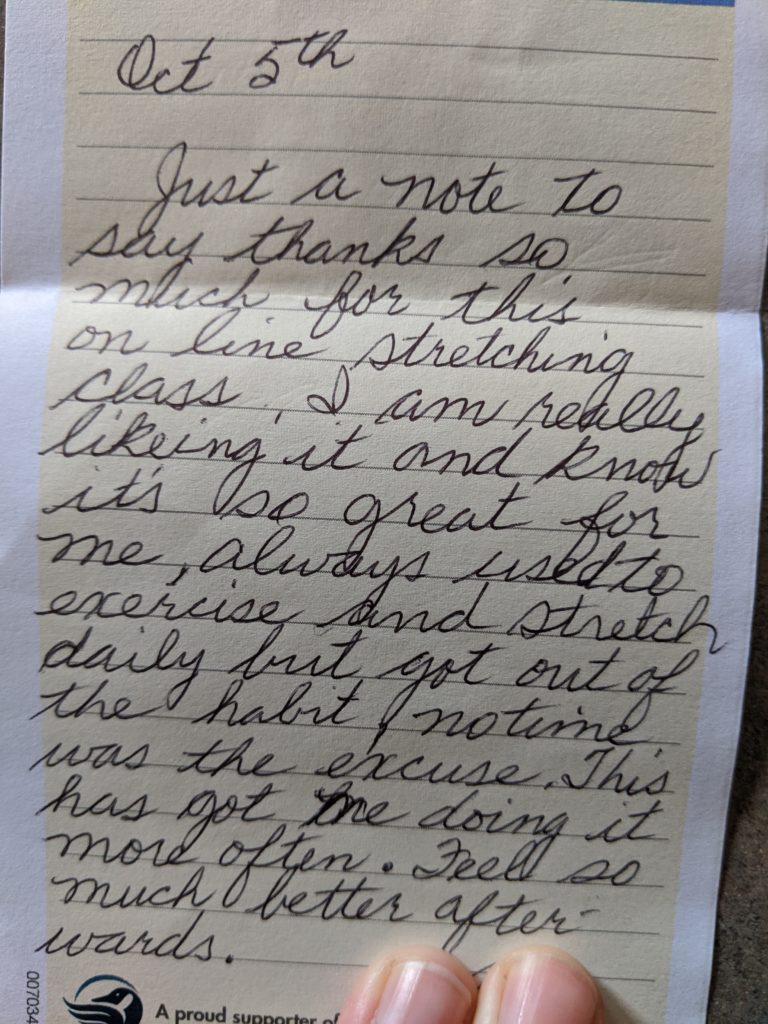 Oct 5th
Just a note to
say thanks so
much for this
on line stretching
class, I am really
likeing it and know
it's so great for
me, always used to
exercise and stretch
daily but got out of
the habit, no time
was the excuse. This
has got me doing it
more often. Feel so
much better after-
wards.
A proud supporter of
007034